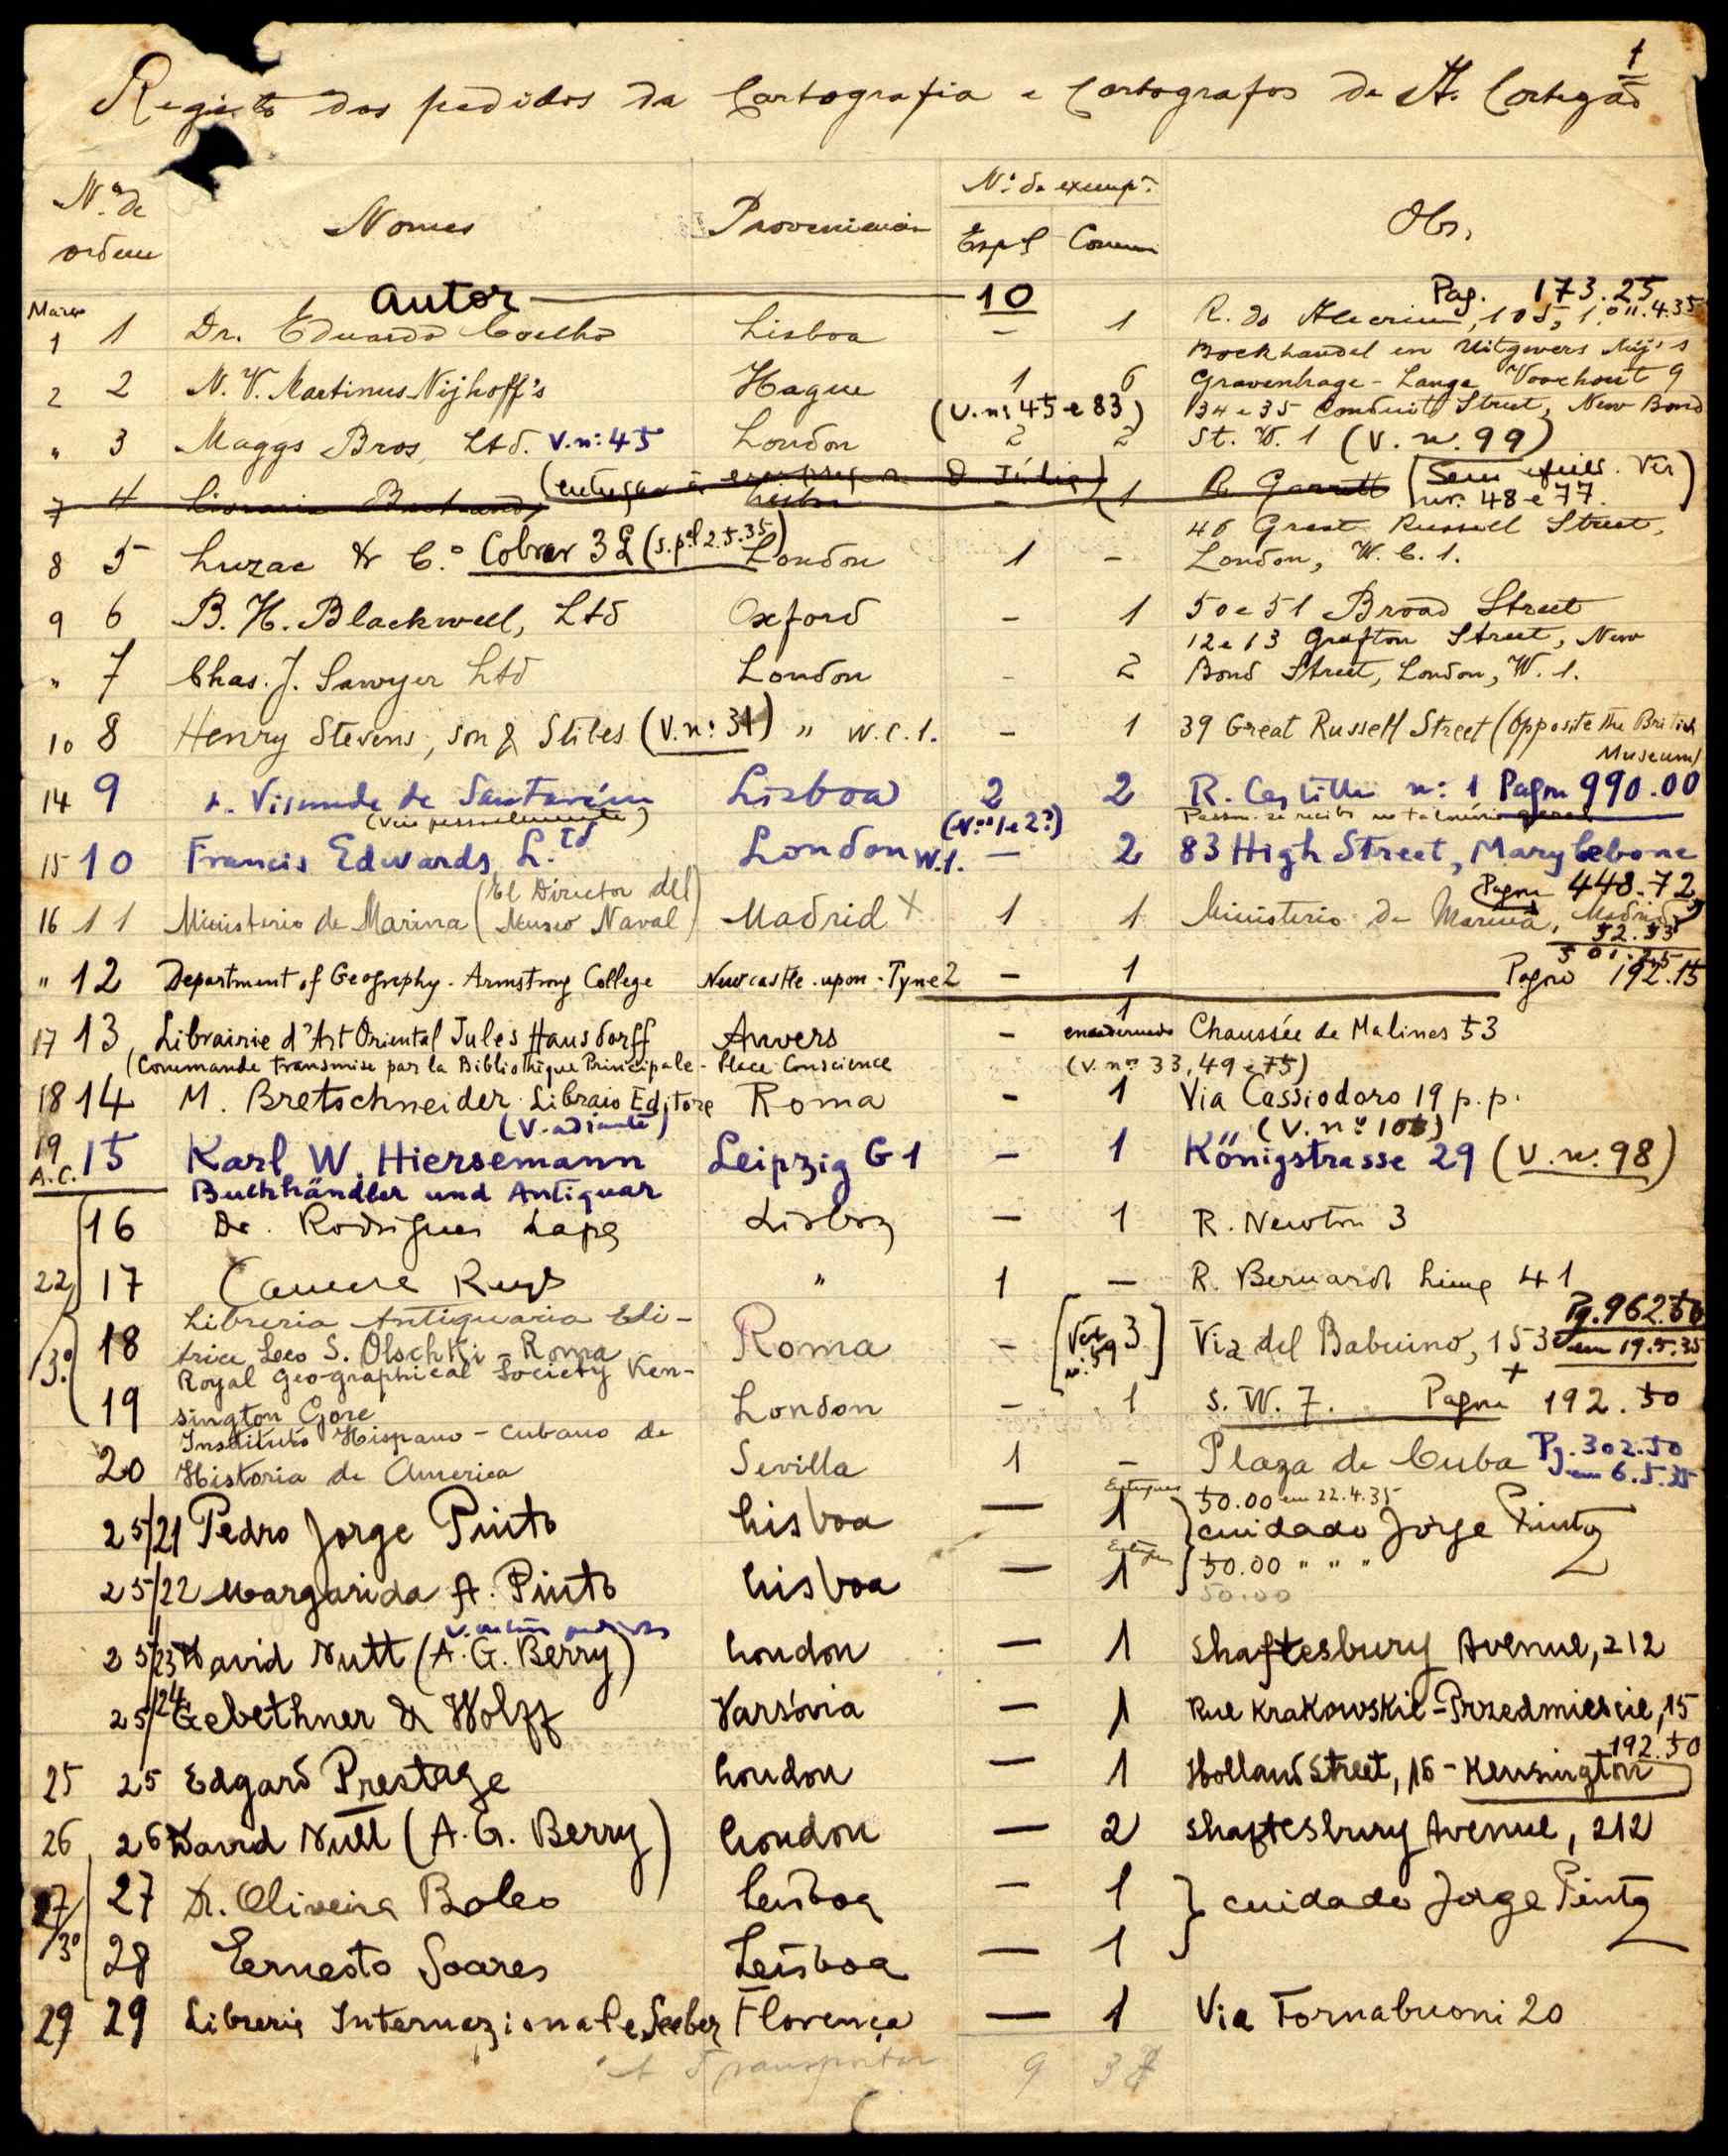 1
Registo dos pedidos da Cartografia e Cartografos de A. Cortezão
N.º de ordem
Nomes
Proveniencia
N.º de exemp.
Esp.l Comum
Obs.
Autor 10
Março
Pag. 173.25
1 1 Dr. Eduardo Coelho Lisboa - 1 R. do Alecrim, 105, 1.º 11.4.35
Boekhandel en Uitgevers Mij 's
2 2 N. V. Martinus Nijhoff's Hague 1 6 Gravenhage - Lange Voorhout 9
(V. nº 45 e 83)
34 e 35 Conduit Street, New Bond
" 3 Maggs Bros, Ltd. V. nº: 45 London 2 2 St. W. 1 (V. n. 99)
7 4 Livraria Bertrand Lisboa - 1 R. Garrett (Sem efeito. Ver nr. 48 e 77.)
46 Great Russell Street,
8 5 Luzac & C.º Cobrar 3£ (s. p.el 2.5.35) London 1 - London, W. C. 1.
9 6 B. H. Blackwell, Ltd Oxford - 1 50 e 51 Broad Street
12 e 13 Grafton Street, New
" 7 Chas. J. Sawyer Ltd London - 2 Bond Street, London, W. 1.
10 8 Henry Stevens, Son & Stiles (V. nº: 31) " W.C.1. - 1 39 Great Russell Street (Opposite the British
Museum)
14 9 Visconde de Santarém Lisboa 2 2 R. Castilho nº: 1 Pagou 990.00
(Veio pessoalmente) (Nºs 1 e 2?)
15 10 Francis Edwards L.td London W.1. - 2 83 High Street, Marylebone
Pagou 448.72
16 11 Ministerio de Marina (El Director del Museo Naval) Madrid + 1 1 Ministerio de Marina, Madrid
52.53
501.25
" 12 Department of Geography - Armstrong College Newcastle-upon-Tyne 2 - 1 Pagou 192.15
17 13 Librairie d'Art Oriental Jules Hausdorff Anvers - 1 encadernado Chaussée de Malines 53
(Commande transmise par la Bibliothèque Principale - Place Conscience (V. nos 33, 49 e 75)
18 14 M. Bretschneider Libraio Editore Roma - 1 Via Cassiodoro 19 p.p.
(V. adiante) (V. nº 106)
19 15 Karl W. Hiersemann Leipzig G 1 - 1 Königstrasse 29 (V. n. 98)
A.C.
Buchhändler und Antiquar
16 Dr. Rodrigues Lapa Lisboa - 1 R. Newton 3
22 17 Ruys " 1 - R. Bernardo Lima 41
Libreria Antiquaria Edi-
Pg. 962.50
18 trice Leo S. Olschki - Roma Roma - [Ver nº: 59 3] Via del Babuino, 153 em 19.5.35
Royal Geographical Society Ken-
19 sington Gore London - 1 S. W. 7. Pagou 192.50
Instituto Hispano-Cubano de
20 Historia de America Sevilla 1 - Plaza de Cuba Pg. 302.50
Pg. em 6.5.35
25/21 Pedro Jorge Pinto Lisboa - 1 50.00 em 22.4.35
cuidado Jorge Pinto
25/22 Margarida A. Pinto Lisboa - 1 50.00 " " "
50.00
25/23 David Nutt (A. G. Berry) London - 1 Shaftesbury Avenue, 212
25/24 Gebethner & Wolff Varsóvia - 1 Rue Krakowskie-Przedmiescie, 15
192.50
25 25 Edgard Prestage London - 1 Holland Street, 16 - Kensington
26 26 David Nutt (A. G. Berry) London - 2 Shaftesbury Avenue, 212
27 27 Dr. Oliveira Boleo Lisboa - 1 cuidado Jorge Pinto
28 Ernesto Soares Lisboa - 1
29 29 Libreria Internazionale Seeber Florença - 1 Via Tornabuoni 20
A Transportar 9